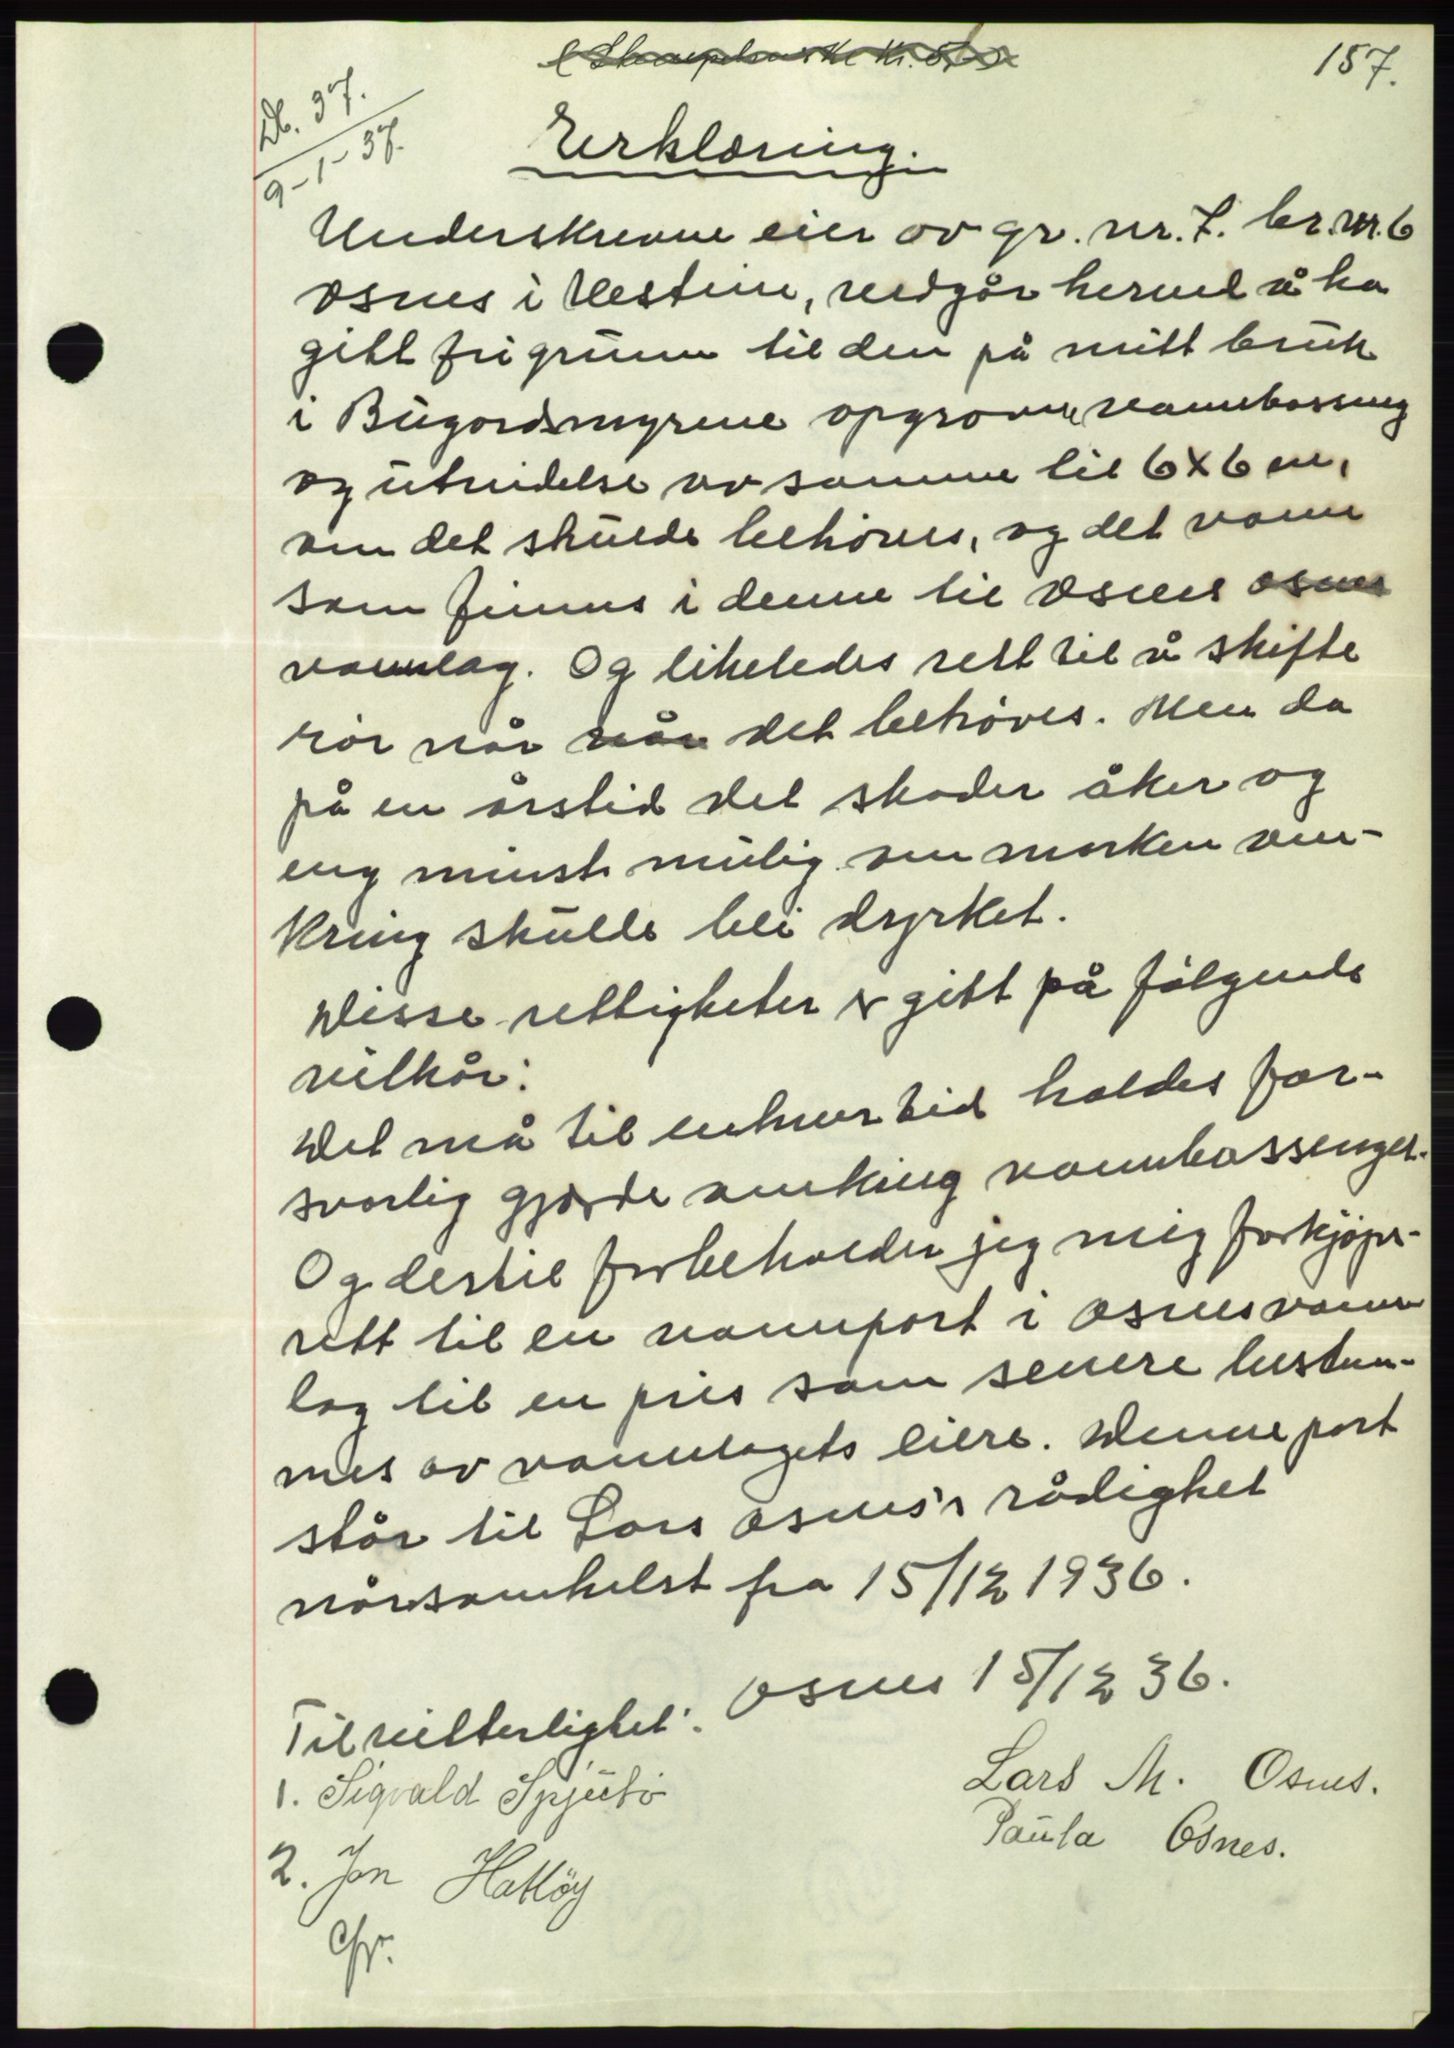 157.
Db. 37.
9-1-37.
Erklæring.
Underskrevne eier av gr. nr. 7. br. nr. 6
Osnes i Vestine, vedgår herved å ha
gitt fri grunn til den på mitt bruk
i Bugardsmyrene opgravne vannbasseng
og utvidelse av samme til 6x6 m,
om det skulde behöves, og det vann
som finnes i denne til Osnes osnes
vannlag. Og likeledes rett til å skifte
rör når når det behöves. Men da
på en årstid det skader åker og
eng minst mulig om marken om-
kring skulde bli dyrket.
Disse rettigheter er gitt på fölgende
vilkår:
Det må til enhver tid holdes for-
svarlig gjerde omkring vannbassenget.
Og dertil forbeholder jeg mig forkjöps-
rett til en vannpart i Osnes vann-
lag til en pris som senere bestem-
mes av vannlagets eiere. Denne part
står til Lars Osnes's rådighet
nårsomhelst fra 15/12 1936.
Osnes 15/12 36.
Til vitterlighet:
Lars M. Osnes.
1. Sigvald Spjutö
Paula Osnes.
2. Jon Hatlöy